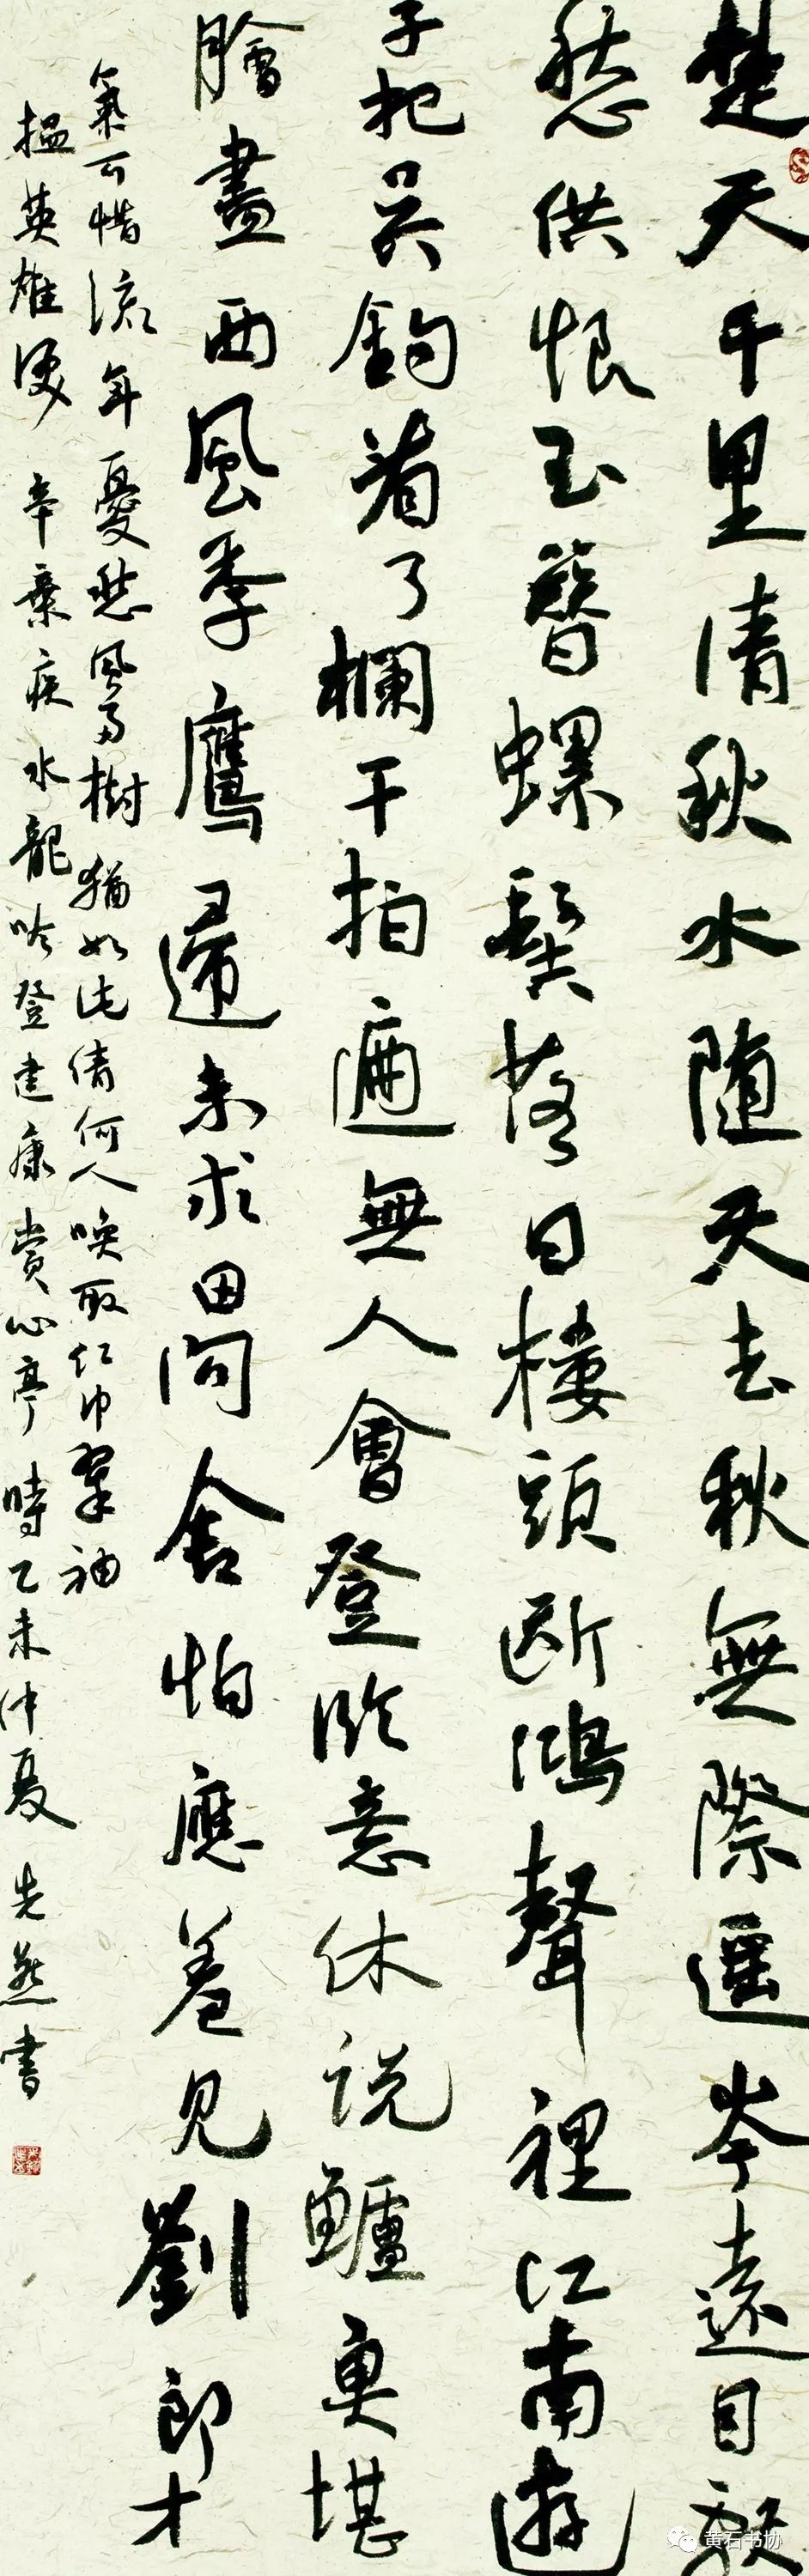 楚天千里清秋水隨天去秋無際遥岑遠目献
愁供恨玉簪螺髻落日樓頭断鴻聲裡江南遊
子把吴鈎看了欄干拍遍無人會登临意休说鱸魚堪
膾盡西風季鷹歸未求田問舍怕應羞見劉郎才
氣可惜流年憂愁風雨樹猶如此倩何人唤取红巾翠袖
揾英雄淚 辛棄疾水龍吟登建康賞心亭 時乙未仲夏 先燕書
黄石书协